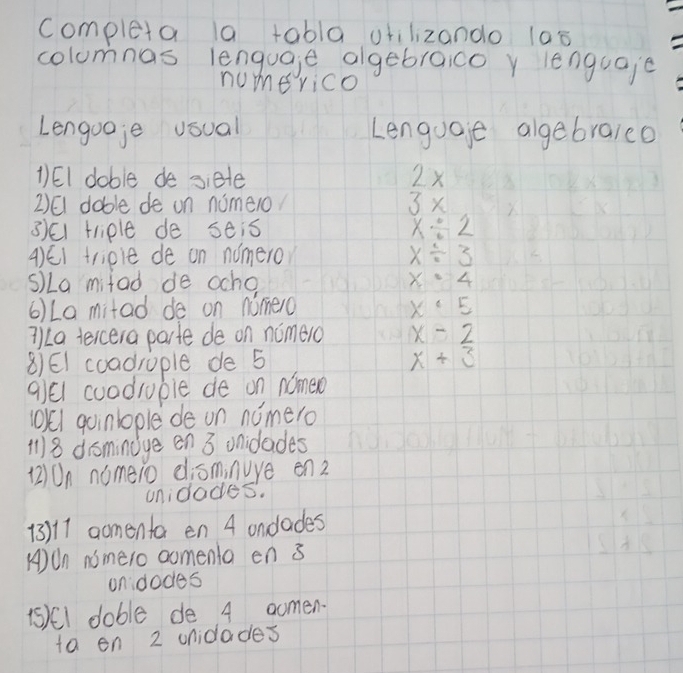 Completa la tabla utilizando las
columnas lenguaje algebraico y lenguaje
numérico
Lenguaje usual Lenguaje algebraico
1) El doble de siete 2x
2) El doble de un número 3x
3) El triple de seis x ÷ 2
4) El triple de un número x ÷ 3
5) La mitad de ocho x · 4
6) La mitad de un número x · 5
7) La tercera parte de un número x - 2
8) El cuadruple de 5 x + 3
9) El cuadruple de un número
10) El quintople de un número
11) 8 disminuye en 3 unidades
12) Un número disminuye en 2
unidades.
13) 11 aomenta en 4 undades
14) Un número aomenta en 3
unidades
15) El doble de 4 aomen-
ta en 2 unidades